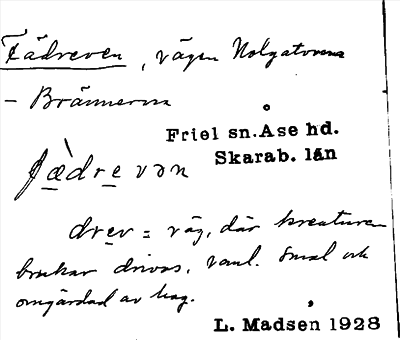 Fädreven, vägen Nolgatorna
- Brännorna
Friel sn. Åse hd.
Skarab. län
fædrevən
drev = väg, där kreaturen
brukar drivas, vanl. smal och
omgärdad av hag.
L. Madsen 1928